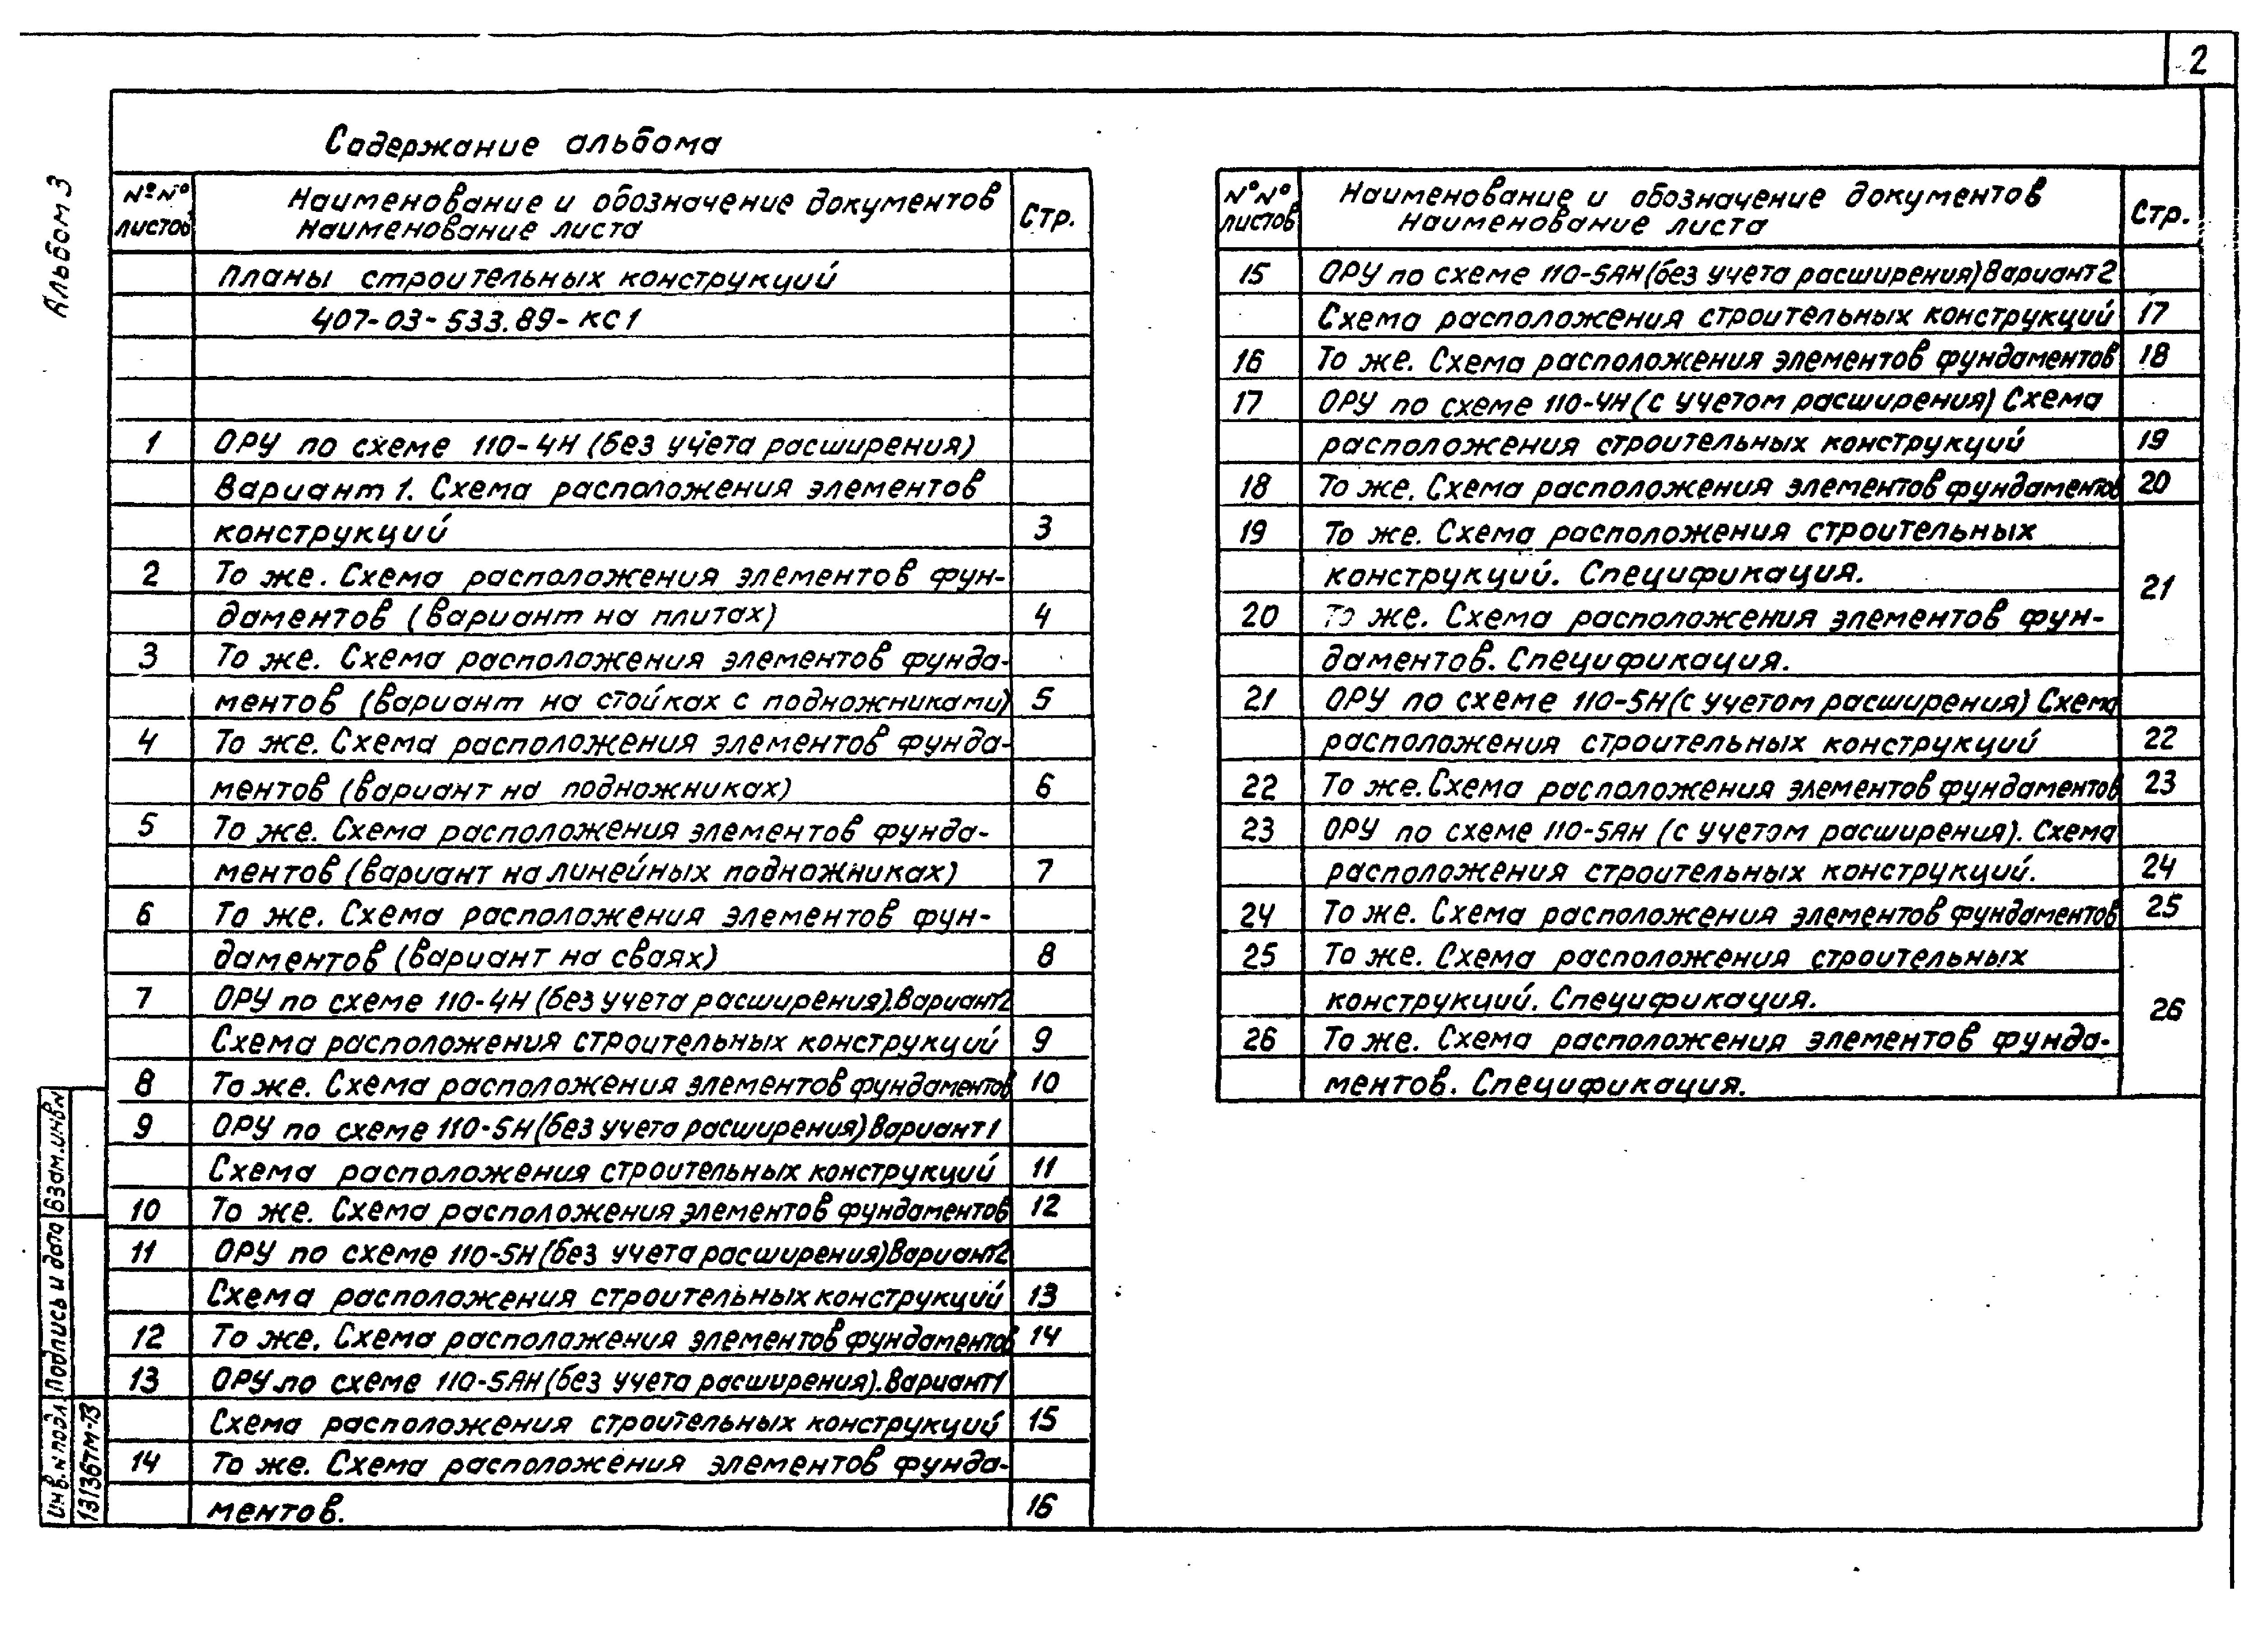 2
Альбом 3
Содержание альбома
№№ листов
Наименование и обозначение документов
Наименование листа
Стр.
Планы строительных конструкций
407-03-533.89-КС1
1 ОРУ по схеме 110-4Н (без учета расширения)
Вариант 1. Схема расположения элементов
конструкций 3
2 То же. Схема расположения элементов фун-
даментов (вариант на плитах) 4
3 То же. Схема расположения элементов фунда-
ментов (вариант на стойках с подножниками) 5
4 То же. Схема расположения элементов фунда-
ментов (вариант на подножниках) 6
5 То же. Схема расположения элементов фунда-
ментов (вариант на линейных подножниках) 7
6 То же. Схема расположения элементов фун-
даментов (вариант на сваях) 8
7 ОРУ по схеме 110-4Н (без учета расширения). Вариант 2
Схема расположения строительных конструкций 9
8 То же. Схема расположения элементов фундаментов 10
9 ОРУ по схеме 110-5Н (без учета расширения) Вариант 1
Схема расположения строительных конструкций 11
10 То же. Схема расположения элементов фундаментов 12
11 ОРУ по схеме 110-5Н (без учета расширения) Вариант 2
Схема расположения строительных конструкций 13
12 То же. Схема расположения элементов фундаментов 14
13 ОРУ по схеме 110-5АН (без учета расширения). Вариант 1
Схема расположения строительных конструкций 15
14 То же. Схема расположения элементов фунда-
ментов. 16
№№ листов
Наименование и обозначение документов
Наименование листа
Стр.
15 ОРУ по схеме 110-5АН (без учета расширения) Вариант 2
Схема расположения строительных конструкций 17
16 То же. Схема расположения элементов фундаментов 18
17 ОРУ по схеме 110-4Н (с учетом расширения) Схема
расположения строительных конструкций 19
18 То же. Схема расположения элементов фундаментов 20
19 То же. Схема расположения строительных
конструкций. Спецификация.
21
20 То же. Схема расположения элементов фун-
даментов. Спецификация.
21 ОРУ по схеме 110-5Н (с учетом расширения) Схема
расположения строительных конструкций 22
22 То же. Схема расположения элементов фундаментов 23
23 ОРУ по схеме 110-5АН (с учетом расширения). Схема
расположения строительных конструкций. 24
24 То же. Схема расположения элементов фундаментов 25
25 То же. Схема расположения строительных
конструкций. Спецификация.
26
26 То же. Схема расположения элементов фунда-
ментов. Спецификация.
Взам. инв №
Подпись и дата
Инв. № подл.
13136тм-т3